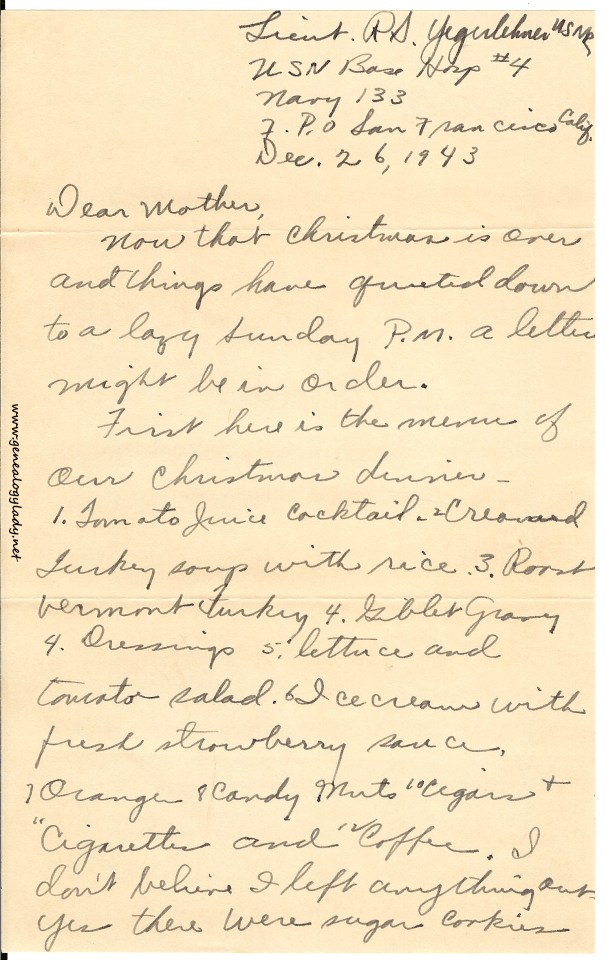 Lieut. R.S. Yegerlehner USNR
USN Base Hosp #4
Navy 133
F.P.O San Francisco Calif.
Dec. 26, 1943
Dear Mother,
Now that Christmas is over
and things have quieted down
to a lazy Sunday P.M. a letter
might be in order.
First here is the menu of
our Christmas dinner -
1. Tomato Juice Cocktail. 2 Creamed
Turkey soup with rice. 3. Roast
Vermont turkey 4. Giblet Gravy
4. Dressings 5. lettuce and
tomato salad. 6 Ice cream with
fresh strawberry sauce.
7 Oranges 8 Candy 9 Nuts 10 Cigars +
11 Cigarettes and 12 Coffee. I
don't believe I left anything out
yes there were sugar cookies
www.genealogylady.net